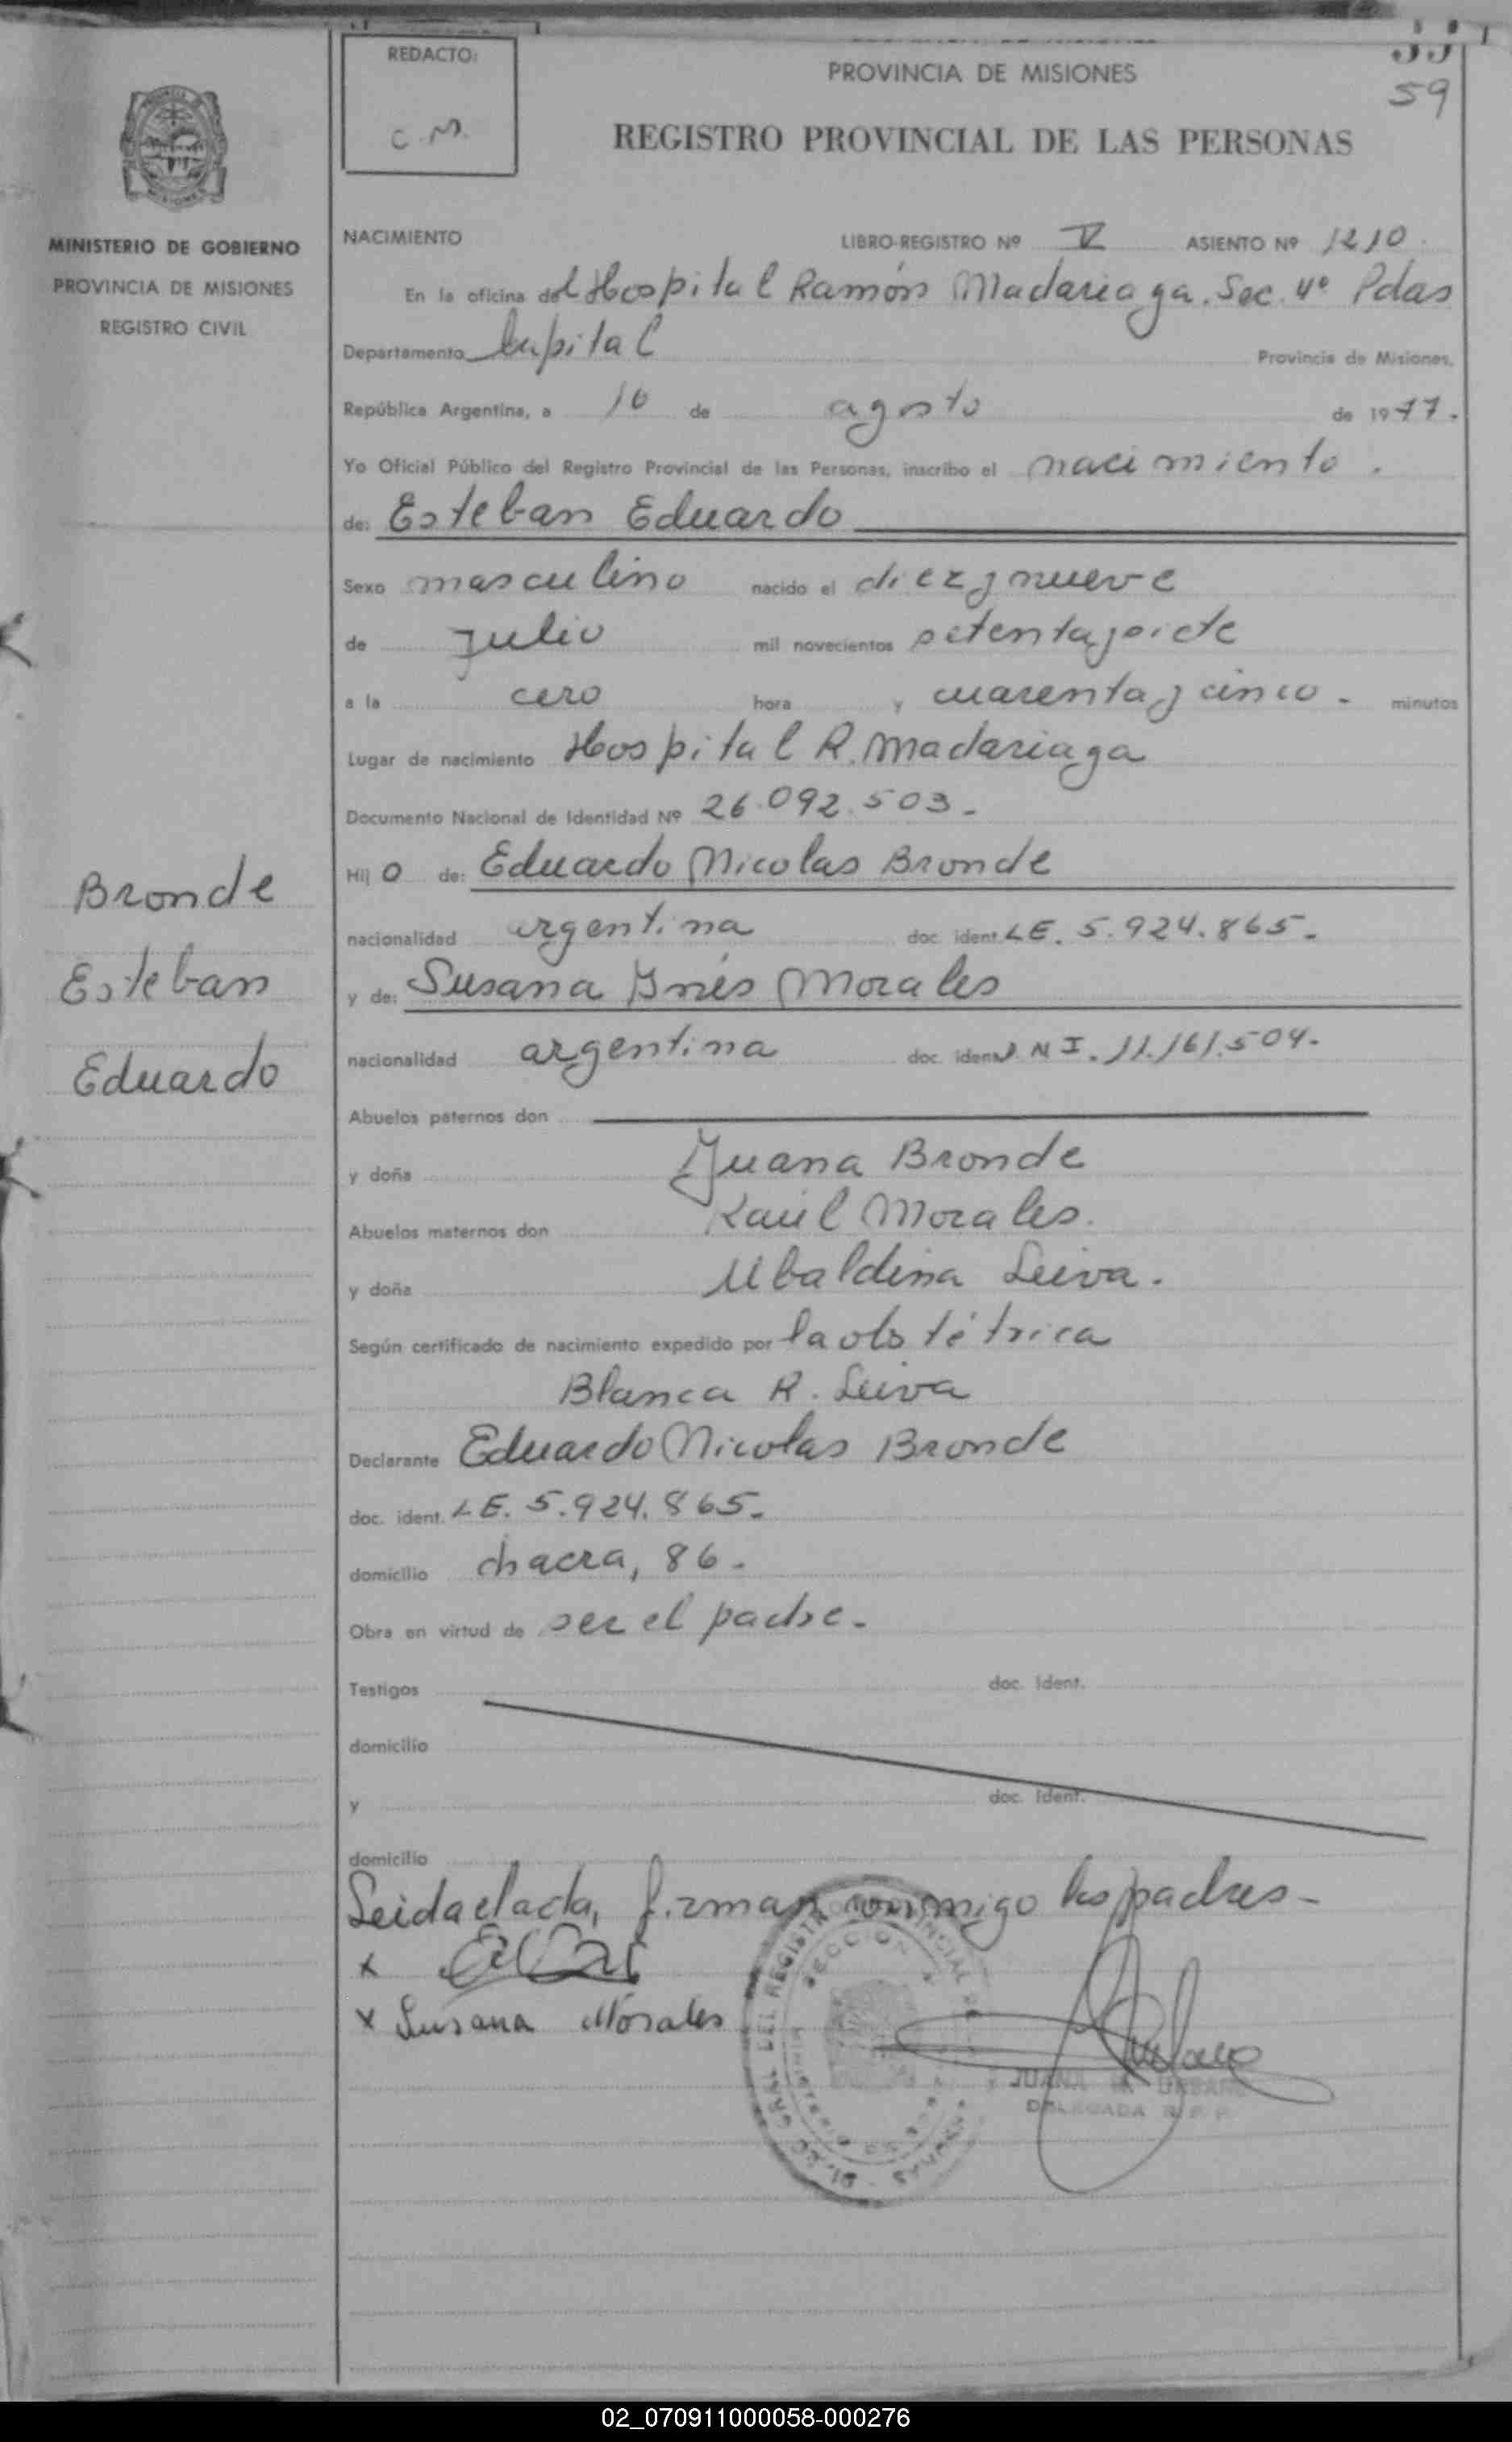 REDACTO:
C.M.
PROVINCIA DE MISIONES
59
REGISTRO PROVINCIAL DE LAS PERSONAS
MINISTERIO DE GOBIERNO
PROVINCIA DE MISIONES
REGISTRO CIVIL
NACIMIENTO LIBRO-REGISTRO Nº V ASIENTO Nº 1210
En la oficina del Hospital Ramón Madariaga. Sec. 4º Pdas
Departamento Capital Provincia de Misiones,
República Argentina, a 10 de agosto de 1977.
Yo Oficial Público del Registro Provincial de las Personas, inscribo el nacimiento.
de: Esteban Eduardo
Sexo masculino nacido el diez y nueve
de julio mil novecientos setenta y siete
a la cero hora y cuarenta y cinco - minutos
Lugar de nacimiento Hospital R. Madariaga
Documento Nacional de Identidad Nº 26.092.503-
Hijo de: Eduardo Nicolas Bronde
nacionalidad argentina doc. ident. LE. 5.924.865-
y de: Susana Ynés Morales
nacionalidad argentina doc. ident. D N I. 11.161.504-
Bronde
Esteban
Eduardo
Abuelos paternos don
y doña Juana Bronde
Abuelos maternos don Raúl Morales.
y doña Ubaldina Leiva.
Según certificado de nacimiento expedido por la obstétrica
Blanca R. Leiva
Declarante Eduardo Nicolas Bronde
doc. ident. LE. 5.924.865-
domicilio chacra, 86-
Obra en virtud de ser el padre-
Testigos doc. ident.
domicilio
y doc. ident.
domicilio
Leida el acta, firman conmigo los padres-
x
x Susana Morales
JUANA URBAN
DELEGADA R. P. P.
02_070911000058-000276